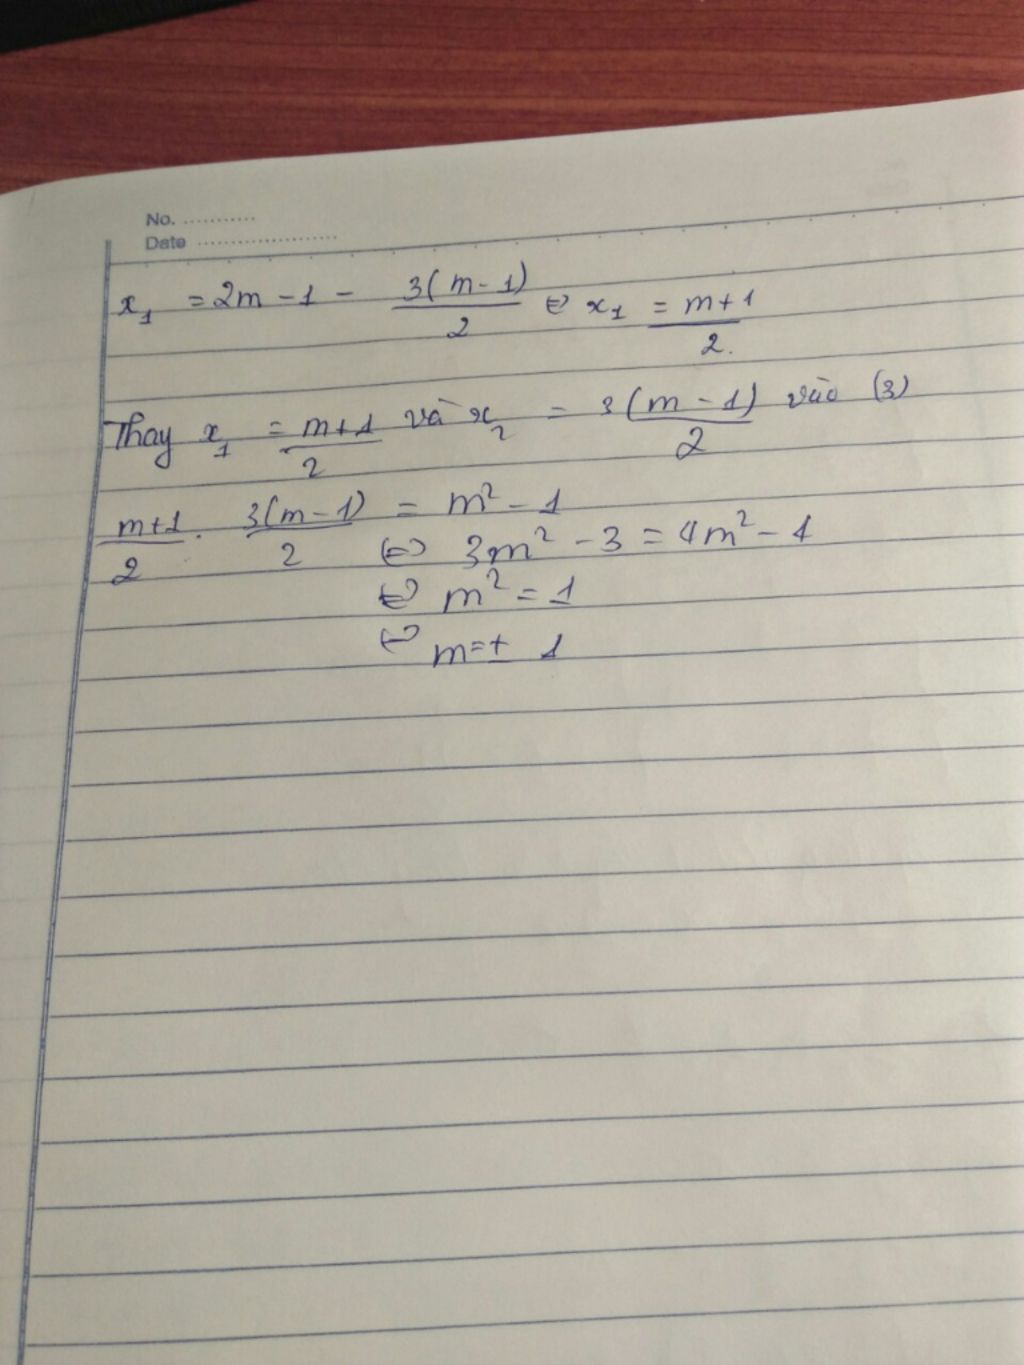 No. ...........
Date ....................
x₁ = 2m - 1 - 3(m-1)/2 ⇔ x₁ = m+1/2.
Thay x₁ = m+1/2 và x₂ = 3(m-1)/2 vào (3)
m+1/2 . 3(m-1)/2 = m² - 1
⇔ 3m² - 3 = 4m² - 4
⇔ m² = 1
⇔ m = ± 1